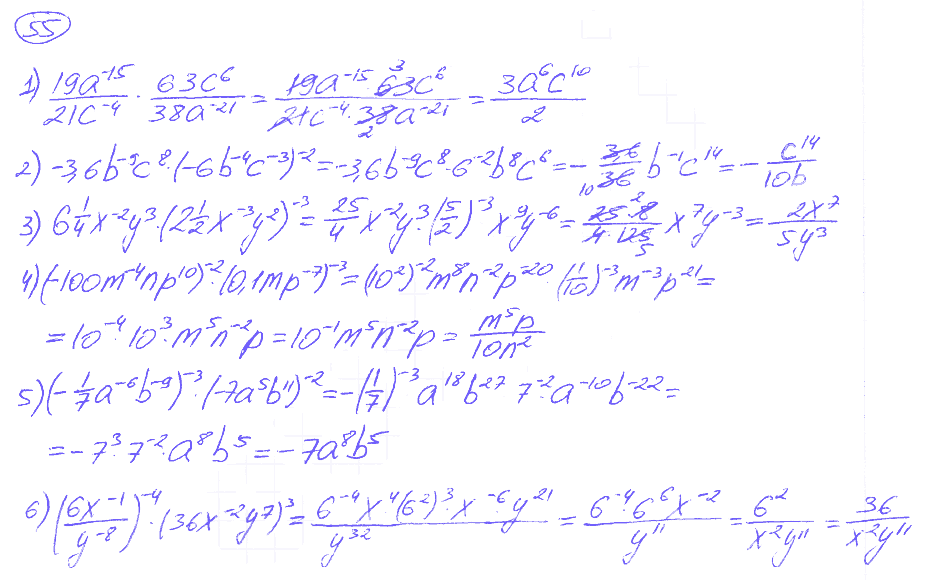 55
1) \frac{19a^{-15}}{21c^{-4}} · \frac{63c^6}{38a^{-21}} = \frac{19a^{-15} · 63c^6}{21c^{-4} · 38a^{-21}} = \frac{3a^6c^{10}}{2}
2) -3,6b^{-9}c^8 · (-6b^{-4}c^{-3})^{-2} = -3,6b^{-9}c^8 · 6^{-2}b^8c^6 = -\frac{3,6}{36}b^{-1}c^{14} = -\frac{c^{14}}{10b}
3) 6\frac{1}{4}x^{-2}y^3 · (2\frac{1}{2}x^{-3}y^2)^{-3} = \frac{25}{4}x^{-2}y^3 · (\frac{5}{2})^{-3} x^9y^{-6} = \frac{25 · 8}{4 · 125}x^7y^{-3} = \frac{2x^7}{5y^3}
4) (-100m^{-4}np^{10})^{-2} · (0,1mp^{-7})^{-3} = (10^2)^{-2}m^8n^{-2}p^{-20} · (\frac{1}{10})^{-3}m^{-3}p^{21} =
= 10^{-4} · 10^3 · m^5n^{-2}p = 10^{-1}m^5n^{-2}p = \frac{m^5p}{10n^2}
5) (-\frac{1}{7}a^{-6}b^{-9})^{-3} · (-7a^5b^{11})^{-2} = -(\frac{1}{7})^{-3}a^{18}b^{27} 7^{-2} · a^{-10}b^{-22} =
= -7^3 · 7^{-2} · a^8b^5 = -7a^8b^5
6) (\frac{6x^{-1}}{y^{-8}})^{-4} · (36x^{-2}y^7)^3 = \frac{6^{-4}x^4(6^2)^3 · x^{-6} · y^{21}}{y^{32}} = \frac{6^{-4} · 6^6x^{-2}}{y^{11}} = \frac{6^2}{x^2y^{11}} = \frac{36}{x^2y^{11}}